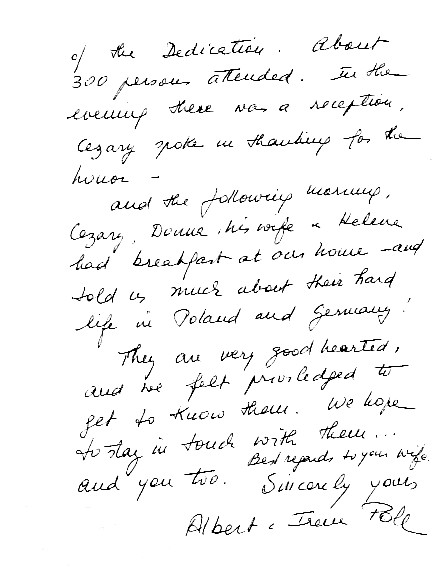 of the Dedication. About
300 persons attended. In the
evening there was a reception,
Cezary spoke in thanking for the
honor -
and the following morning,
Cezary, Donna, his wife & Helene
had breakfast at our home - and
told us much about their hard
life in Poland and Germany!
They are very good hearted,
and we felt priviledged to
get to know them. We hope
to stay in touch with them...
Best regards to your wife.
and you too. Sincerely yours
Albert & Irene Poll